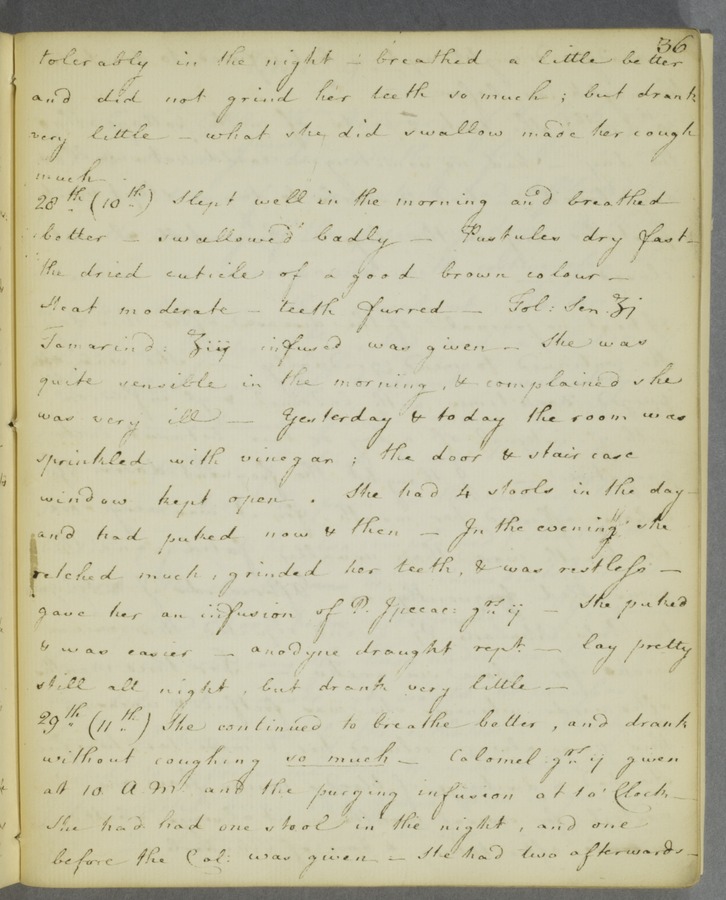 36
tolerably in the night – breathed a little better
and did not grind her teeth so much; but drank
very little – what she did swallow made her cough
much.
28th (10th) Slept well in the morning and breathed
better – swallowed badly – Pustules dry fast –
the dried cuticle of a good brown colour –
Heat moderate – teeth furred – Fol: Sen. ʒj
Tamarind: ʒiij infused was given – She was
quite sensible in the morning, & complained she
was very ill — Yesterday & today the room was
sprinkled with vinegar; the door & stair case
window kept open. She had 4 stools in the day
and had puked now & then – In the evening she
retched much, grinded her teeth, & was restless –
gave her an infusion of P. Ipecac: grs ij – She puked
& was easier – anodyne draught rept. — lay pretty
still all night, but drank very little –
29th (11th) She continued to breathe better, and drank
without coughing so much – Calomel grs ij given
at 10 A.M. and the purging infusion at 10' Clock –
She had had one stool in the night, and one
before the Cal: was given – She had two afterwards –